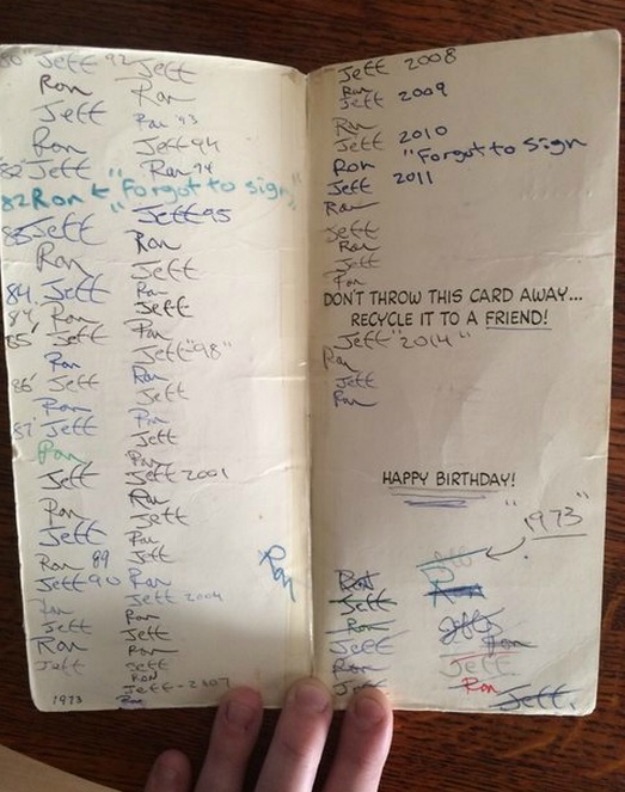 80" Jeff
Ron
Jeff
Ron
'82 Jeff
82 Ron ← "Forgot to sign"
83 Jeff
Ron
84. Jeff
84 Ron
85' Jeff
Ron
86' Jeff
Ron
87' Jeff
Ron
Jeff
Ron
Jeff
Ron 89
Jeff 90
Ron
Jeff
Ron
Jeff
1973
92 Jeff
Ron
Ron '93
Jeff 94
Ron 94
Jeff 95
Ron
Jeff
Ron
Jeff
Ron
Jeff "98"
Ron
Jeff
Ron
Jeff
Ron
Jeff 2001
Ron
Jeff
Ron
Jeff
Ron
Jeff 2004
Ron
Jeff
Ron
Jeff
RON
Jeff - 2007
Ron
Ron
Jeff 2008
Ron
Jeff 2009
Ron
Jeff 2010
Ron "Forgot to sign
Jeff 2011
Ron
Jeff
Ron
Jeff
Ron
DON'T THROW THIS CARD AWAY...
RECYCLE IT TO A FRIEND!
Jeff "2014"
Ron
Jeff
Ron
HAPPY BIRTHDAY!
"1973"
Ron
Jeff
Ron
Jeff
Ron
Jeff
Jeff
Ron
Jeff
Ron
Jeff
Ron
Jeff.